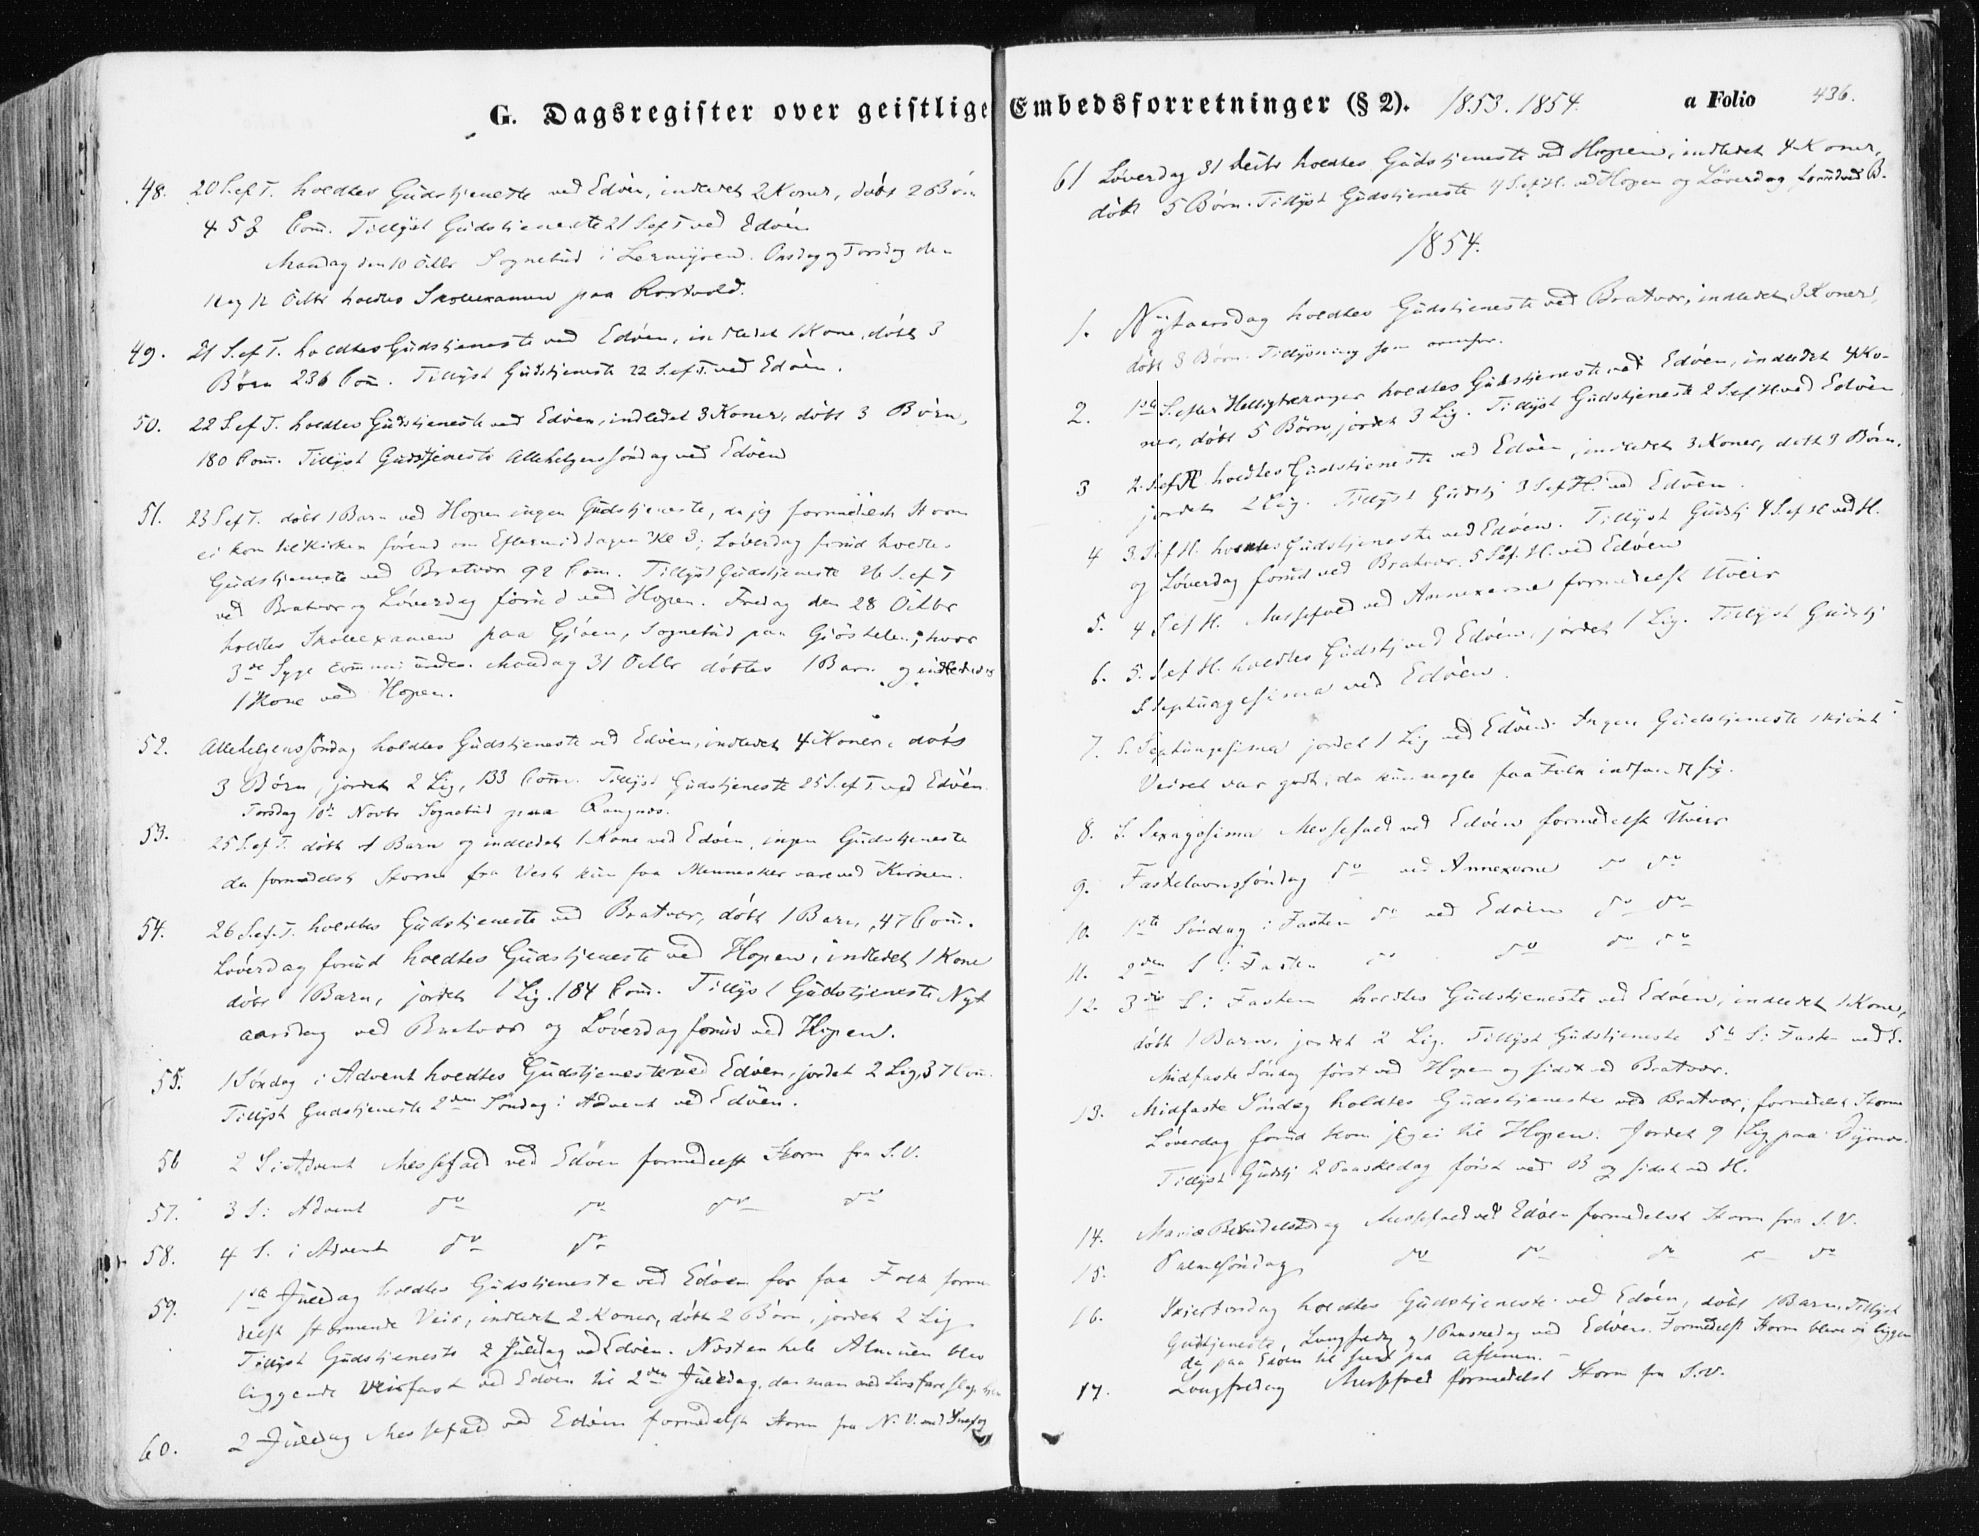 G. Dagsregister over geistlige Embedsforretninger (§ 2). 1853. 1854. a Folio 436.
48. 20 S. ef T. holdtes Gudstjeneste ved Edöen, indledet 2 Koner, döbt 2 Börn
453 Com. Tillyst Gudstjeneste 21 S ef T ved Edöen
Mandag den 10 Octbr Sognebud i Lermyren. Onsdag og Torsdag den
12 Octbr holdtes Skoleexamen paa
49. 21 S. ef T. holdtes Gudstjeneste ved Edöen, indledet 1 Kone, döbt 3
Börn 236 Com. Tillyst Gudstjeneste 22 S. ef T. ved Edöen.
50. 22 S ef T. holdtes Gudstjeneste ved Edöen, indledet 3 Koner, döbt 3 Börn,
180 Com. Tillyst Gudstjeneste Allehelgenssöndag ved Edöen
51. 23 S ef T. döbt 1 Barn ved Hopen ingen Gudstjeneste, da jeg formedelst Storm
ei kom til Kirken förend om Eftermiddagen Kl 3; Löverdag forud holdtes
Gudstjeneste ved Bratvær 92 Com. Tillyst Gudstjeneste 26 S. ef T
ved Bratvær og Löverdag forud ved Hopen. Fredag den 28 Octbr
holdtes Skoleexamen paa Gjöen, Sognebud paa hvor
3de Syge Mandag 31 Octbr döbtes 1 Barn og indledes
1 Kone ved Hopen.
52. Allehelgenssöndag holdtes Gudstjeneste ved Edöen, indledet 4 Koner, döbt
3 Börn, jordet 2 Lig, 133 Com. Tillyst Gudstjeneste 25 S. ef T. ved Edöen.
Torsdag 10de Novbr Sognebud paa
53. 25 S. ef T. döbt 1 Barn og indledet 1 Kone ved Edöen, ingen Gudstjeneste
da formedelst Storm fra Vest kun faa Mennesker vare ved Kirken.
54. 26 S. ef. T. holdtes Gudstjeneste ved Bratvær, döbt 1 Barn, 47 Com.
Löverdag forud holdtes Gudstjeneste ved Hopen, indledet 1 Kone
döbt 1 Barn, jordet 1 Lig. 184 Com. Tillyst Gudstjeneste Nyt
aarsdag ved Bratvær og Löverdag forud ved Hopen.
55. 1 Söndag i Advent holdtes Gudstjeneste ved Edöen, jordet 2 Lig, 37 Com.
Tillyst Gudstjeneste 2den Söndag i Advent ved Edöen.
56 2 S i Advent Messefald ved Edöen formedelst Storm fra S. V.
57. 3 S i Advent do do do do
58. 4 S. i Advent do do
59. 1ste Juledag holdtes Gudstjeneste ved Edöen for faa Folk forme
delst stormende Veir, indledet 2 Koner, döbt 2 Börn, jordet 2 Lig
Tillyst Gudstjeneste 2 Juledag ved Edöen. Næsten hele Almuen blev
liggende veirfast ved Edöen til 2den Juledag, da man med Livsfare
60. 2 Juledag Messefald ved Edöen formedelst Storm fra N. V. med
61 Löverdag 31 Decbr holdtes Gudstjeneste ved Hopen, indledet 4 Koner,
döbt 5 Börn. Tillyst Gudstjeneste 4 S. ef H. ved Hopen og Löverdag forud ved B.
1854.
1. Nytaarsdag holdtes Gudstjeneste ved Bratvær, indledet 3 Koner,
döbt 3 Börn. Tillysning som ovenfor.
2. 1ste S. efter Helligtrekonger holdtes Gudstjeneste ved Edöen, indledet 4 Ko-
ner, döbt 5 Börn, jordet 3 Lig. Tillyst Gudstjeneste 2 S. ef H ved Edöen
3 2. S. ef H. holdtes Gudstjeneste ved Edöen, indledet 3 Koner, döbt 3 Börn,
jordet 2 Lig. Tillyst Gudstj 3 S ef H. ved Edöen.
4 3 S ef H. holdtes Gudstjeneste ved Edöen. Tillyst Gudstj 4 S. ef H ved H.
og Löverdag forud ved Bratvær. 5 S ef. H. ved Edöen
5. 4 S ef H. Messefald ved Annexerne formedelst Uveir
6. 5. S ef H. holdtes Gudstj ved Edöen, jordet 1 Lig. Tillyst Gudstj
S. Septuagesima ved Edöen.
7. S. Septuagesima jordet 1 Lig ved Edöen. Ingen Gudstjeneste skjönt
Veiret var godt, da kun nogle faa Folk indfandt sig.
8. S. Sexagesima Messefald ved Edöen formedelst Uveir
9. Fastelavnssöndag do ved Annexerne do do
10. 1ste Söndag i Fasten do ved Edöen do do
11. 2den S i Fasten do do do do
12. 3die S i Fasten holdtes Gudstjeneste ved Edöen, indledet 1 Kone,
döbt 1 Barn, jordet 2 Lig. Tillyst Gudstjeneste 5te S i Fasten ved E.
Midfaste Söndag först ved Hopen og sidst ved Bratvær.
13. Midfaste Söndag holdtes Gudstjeneste ved Bratvær, formedelst Storm
Löverdag forud kom jeg ei til Hopen. Jordet 9 Lig paa
Tillyst Gudstj 2 Paaskedag först ved B og sidst ved H.
14. Mariæ Bebudelsesdag Messefald ved Edöen formedelst Storm fra S. V.
15. Palmesöndag do do do do do
16. Skiertorsdag holdtes Gudstjeneste ved Edöen, döbt 1 Barn. Tillyst
Gudstjeneste Langfredag og 1 Paaskedag ved Edöen. Formedelst Storm bleve vi liggen
de paa Edöen til sent paa Aftenen.
17. Langfredag Messefald formedelst Storm fra S. V.